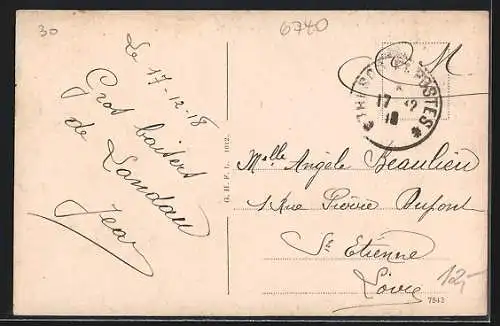 30
6740
Le 17-12-18
Gros baisers
de Landau
Jean
F. M
TRÉSOR ET POSTES
17 12
18
Melle Angèle Beaulieu
1 Rue Pierre Dupont
St Etienne
Loire
12,-
G. H. F. L. 1012.
7543